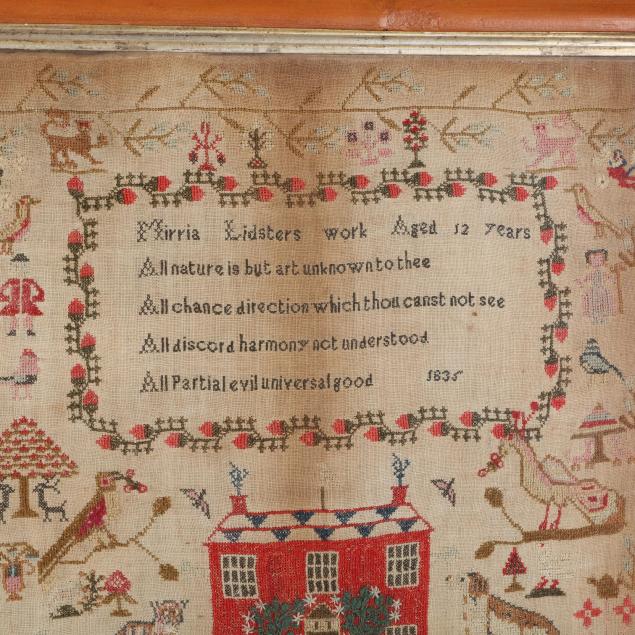 Mirria Lidsters work Aged 12 years
All nature is but art unknown to thee
All chance direction which thou canst not see
All discord harmony not understood
All Partial evil universal good 1835